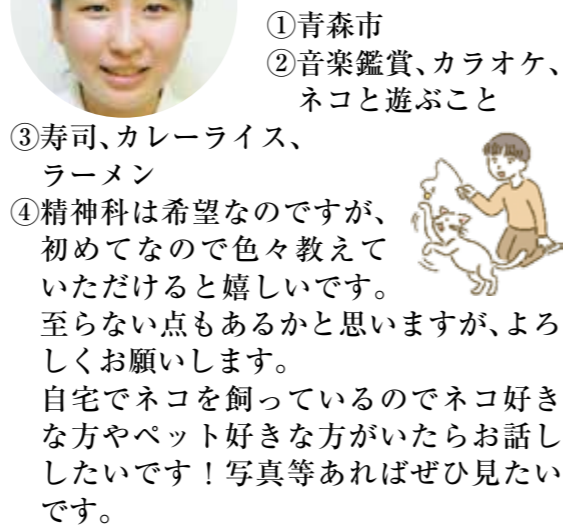 ①青森市
②音楽鑑賞、カラオケ、
ネコと遊ぶこと
③寿司、カレーライス、
ラーメン
④精神科は希望なのですが、
初めてなので色々教えて
いただけると嬉しいです。
至らない点もあるかと思いますが、よろ
しくお願いします。
自宅でネコを飼っているのでネコ好き
な方やペット好きな方がいたらお話し
したいです！写真等あればぜひ見たい
です。